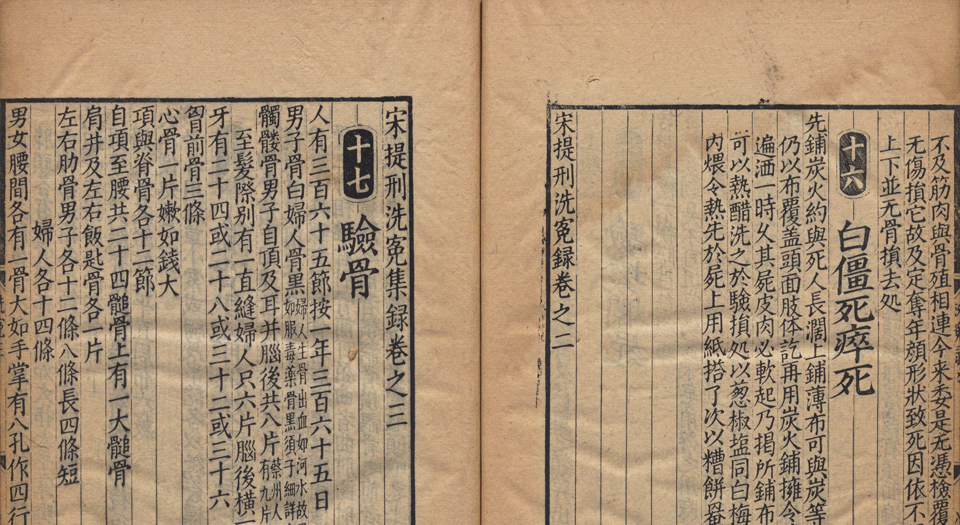 不及筋肉與骨殖相連今来委是无憑檢覆
无傷損它故及定奪年顏形狀致死因依不
上下並无骨損去処
十六
白僵死瘁死
先鋪炭火約與死人長濶上鋪薄布可與炭等
仍以布覆盖頭面肢体訖再用炭火鋪擁令
遍洒一時乆其屍皮肉必軟起乃揭所鋪布
可以熱醋洗之於驗損処以葱椒塩同白梅
内煨令熱先於屍上用紙搭了次以糟餅罨
宋提刑洗冤録卷之二
宋提刑洗冤集録卷之三
十七
驗骨
人有三百六十五節按一年三百六十五日
男子骨白婦人骨黑 婦人生骨出血如河水故 如服毒藥骨黑須子細詳
髑髏骨男子自頂及耳并腦後共八片 蔡州人 有九片
至髮際别有一直縫婦人只六片腦後横一
牙有二十四或二十八或三十二或三十六
胷前骨三條
心骨一片嫩如錢大
項與脊骨各十二節
自項至腰共二十四髄骨上有一大髄骨
肩井及左右飯匙骨各一片
左右肋骨男子各十二條八條長四條短
婦人各十四條
男女腰間各有一骨大如手掌有八孔作四行